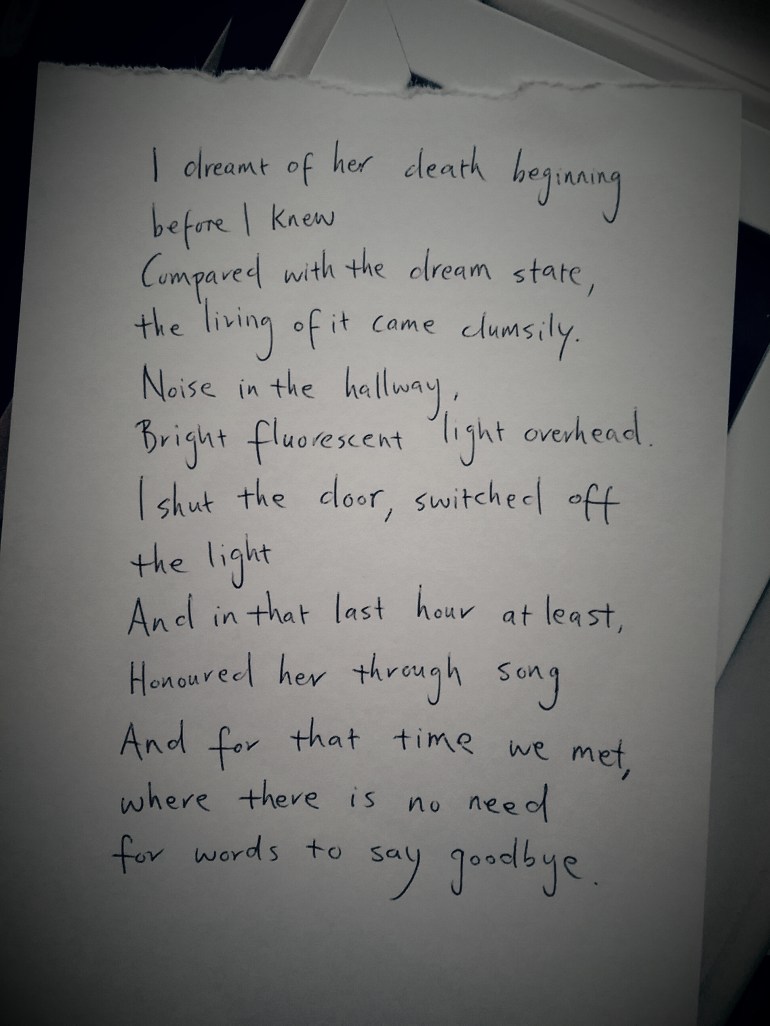 I dreamt of her death beginning
before I knew
Compared with the dream state,
the living of it came clumsily.
Noise in the hallway,
Bright fluorescent light overhead.
I shut the door, switched off
the light
And in that last hour at least,
Honoured her through song
And for that time we met,
where there is no need
for words to say goodbye.